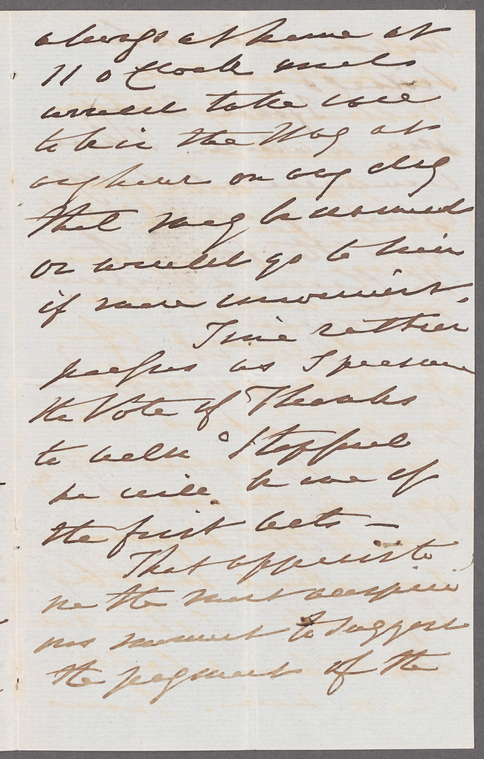 always at home at
11 o'Clock and
would take care
to be in the Way at
any hour on any day
that may be named
or would go to him
if more convenient.
Time rather
presses as I presume
the Vote of Thanks
to
he will be one of
the first acts —
That appears to
me the most auspici
ous moment to suggest
the payment of the